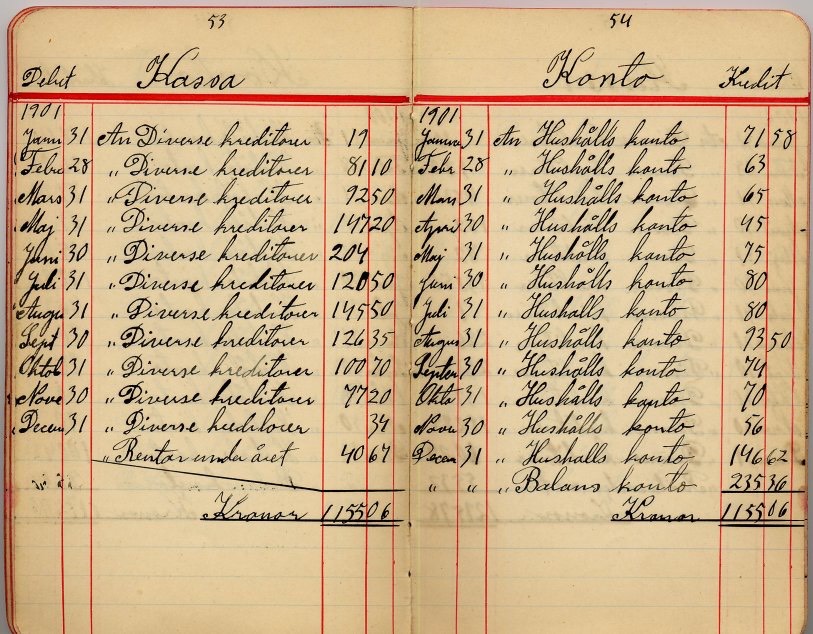 53
Debet Kassa
1901
Janu 31 An Diverse kreditorer 19
Febr 28 " Diverse kreditorer 81 10
Mars 31 " Diverse kreditorer 92 50
Maj 31 " Diverse kreditorer 147 20
Juni 30 " Diverse kreditorer 204
Juli 31 " Diverse kreditorer 120 50
Augu 31 " Diverse kreditorer 145 50
Sept 30 " Diverse kreditorer 126 35
Oktob 31 " Diverse kreditorer 100 70
Nove 30 " Diverse kreditorer 77 20
Decem 31 " Diverse kreditorer 34
" Räntor under året 40 67
Kronor 1155 06
54
Konto Kredit
1901
Janua 31 An Hushålls konto 71 58
Febr 28 " Hushålls konto 63
Mars 31 " Hushålls konto 65
Apri 30 " Hushålls konto 45
Maj 31 " Hushålls konto 75
Juni 30 " Hushålls konto 80
Juli 31 " Hushålls konto 80
Augus 31 " Hushålls konto 93 50
Septem 30 " Hushålls konto 74
Okto 31 " Hushålls konto 70
Nove 30 " Hushålls konto 56
Decem 31 " Hushålls konto 146 62
" " " Balans konto 235 36
Kronor 1155 06